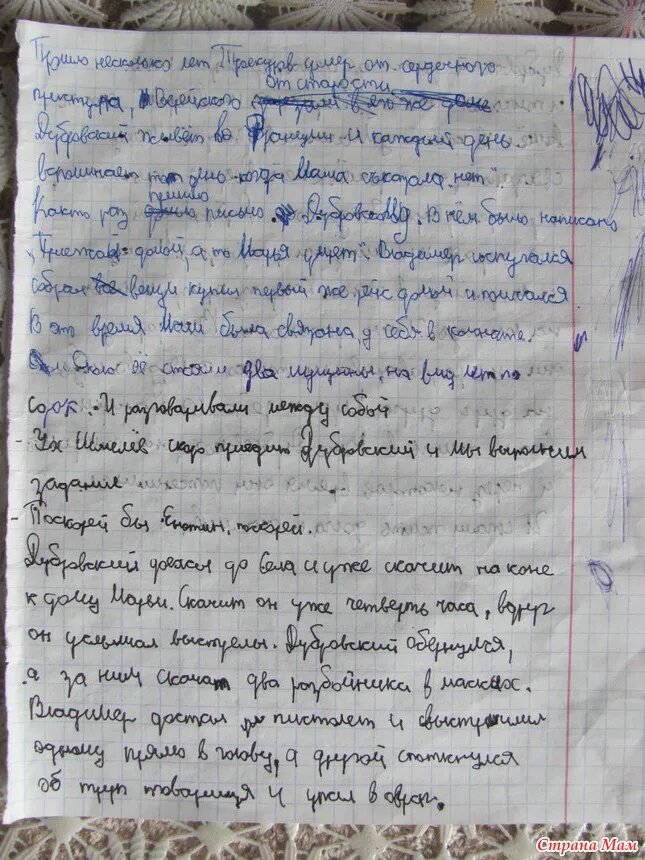 Прошло несколько лет. Троекуров умер от сердечного
от старости
приступа, Верейского передали в его же доме
Дубровский живёт во Франции и каждый день
вспоминает тот день когда Маша сказала "нет".
пришло
Както раз письмо Дубровскому. В нём было написано
"Приезжай домой, а то Марья умрёт". Владимер испугался
собрал все вещи купил первый же рейс домой и
В это время Маша была связана, у себя в комнате.
Около её стояли два мущины, на вид лет по
сорок. И разговаривали между собой
- Ух Шмелёв скоро приедит Дубровский и мы выполним
задание
- Поскорей бы Енотин, поскорей.
Дубровский доехал до села и уже скачит на коне
к дому Марьи. Скачит он уже четверть часа, вдруг
он услышал выстрелы. Дубровский обернулся,
а за ним скачат два розбойника в масках.
Владимер достал пистолет и выстрелил
одному прямо в голову, а другой споткнулся
об труп товарища и упал в овраг.
Страна Мам